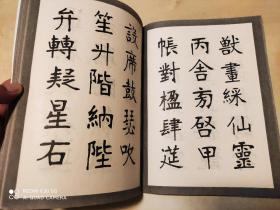 獸畫綵仙靈
丙舍旁啓甲
帳對楹肆筵
設席鼓瑟吹
笙升階納陛
弁轉疑星右